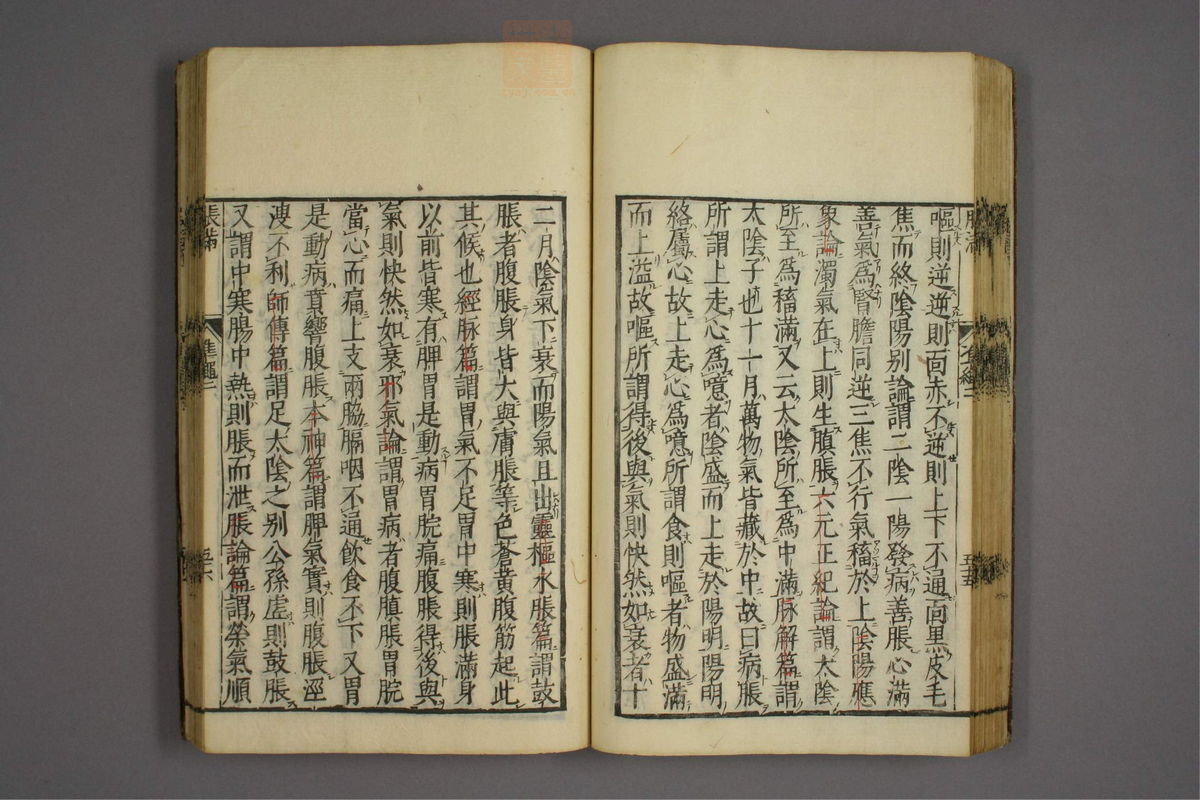 嘔則逆逆則面赤不逆則上下不通面黒皮毛
焦而終陰陽别論謂二陰一陽發病善脹心滿
善氣爲腎膽同逆三焦不行氣稸於上陰陽應
象論濁氣在上則生䐜脹六元正紀論謂太陰
所至爲稸滿又云太陰所至爲中滿脉解篇謂
太陰子也十一月萬物氣皆藏於中故曰病脹
所謂上走心爲噫者陰盛而上走於陽明陽明
絡屬心故上走心爲噫所謂食則嘔者物盛滿
而上溢故嘔所謂得後與氣則快然如衰者十
二月陰氣下衰而陽氣且出靈樞水脹篇謂鼓
脹者腹脹身皆大與膚脹等色蒼黄腹筋起此
其候也經脉篇謂胃氣不足胃中寒則脹滿身
以前皆寒有胛胃是動病胃脘痛腹脹得後與
氣則快然如衰邪氣論謂胃病者腹䐜脹胃脘
當心而痛上支兩脇膈咽不通飲食不下又胃
是動病賁響腹脹本神篇謂脾氣實則腹脹涇
溲不利師傳篇謂足太陰之别公孫虚則鼓脹
又謂中寒腸中熱則脹而泄脹論篇謂榮氣順
脹滿
五十六
五十五